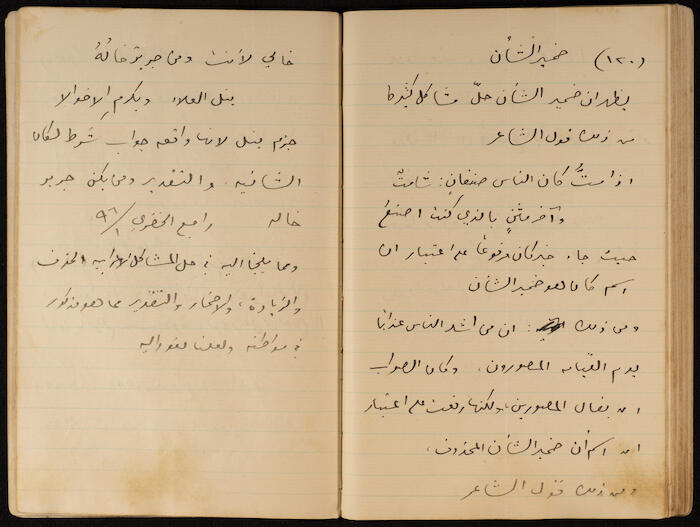 (١٢٠) ضمير الشأن
يظهر ان ضمير الشأن حلّ مشاكل كثيرة
من ذلك قول الشاعر
اذا متُّ كان الناس صنفانِ: شامتٌ
وآخر مثنٍ بالذي كنت اصنعُ
حيث جاء خبر كان مرفوعاً على اعتبار ان
اسم كان هو ضمير الشأن
ومن ذلك : ان من اشد الناس عذابًا
يوم القيامه المصورون، وكان الصواب
ان يقال المصورين، ولكنها رفعت على اعتبار
ان اسم أن ضمير الشأن المحذوف،
ومن ذلك قول الشاعر
خالي لأنت ومن جرير خالُهُ
ينل العلاء ويكرم الاخوالا
جزم ينل لانها واقعه جواب شرط لكان
الشانيه. والتقدير ومن يكن جرير
خاله راجع الخضري ٩٦/١
ومما يلجأ اليه في حل المشاكل الاعرابيه الحذف
والزيادة، والاضمار والتقدير مما هو مذكور
في مواطنه ولعلنا نعود اليه